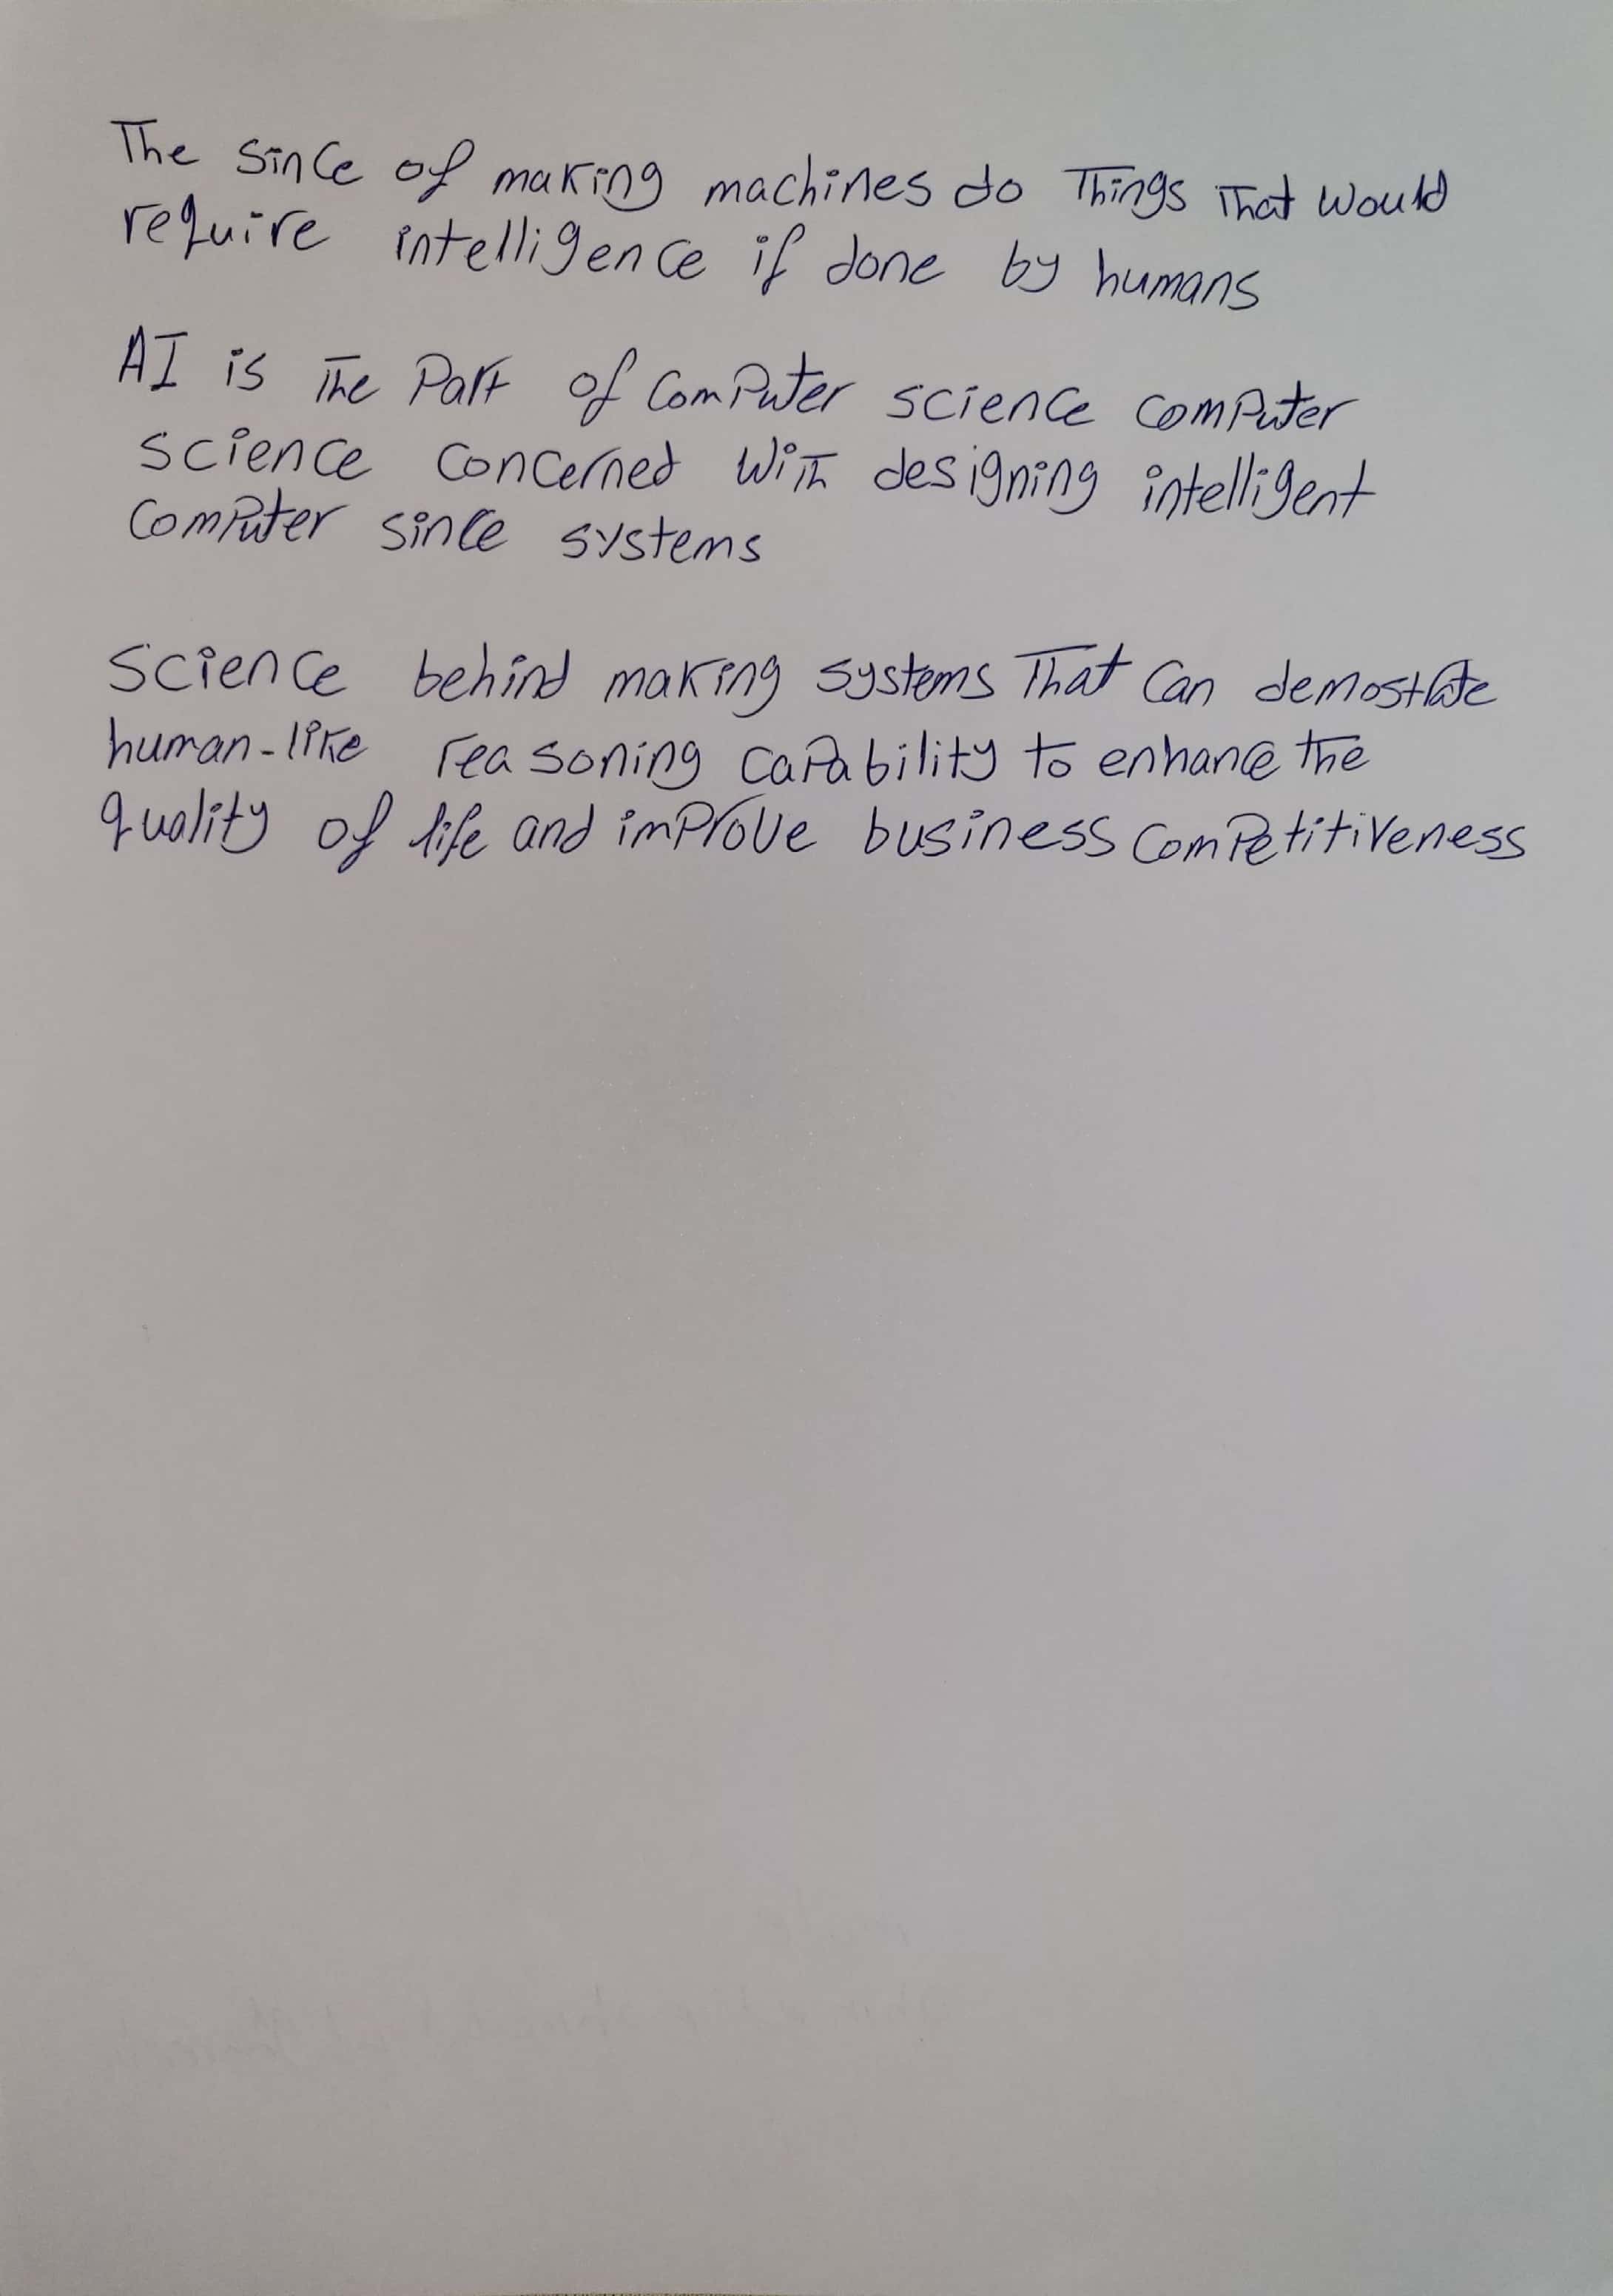 The since of making machines do Things That would
require intelligence if done by humans
AI is The Part of Computer science computer
science concerned with designing intelligent
Computer since systems
Science behind making systems That Can demostrate
human-like reasoning capability to enhance the
quality of life and improve business competitiveness